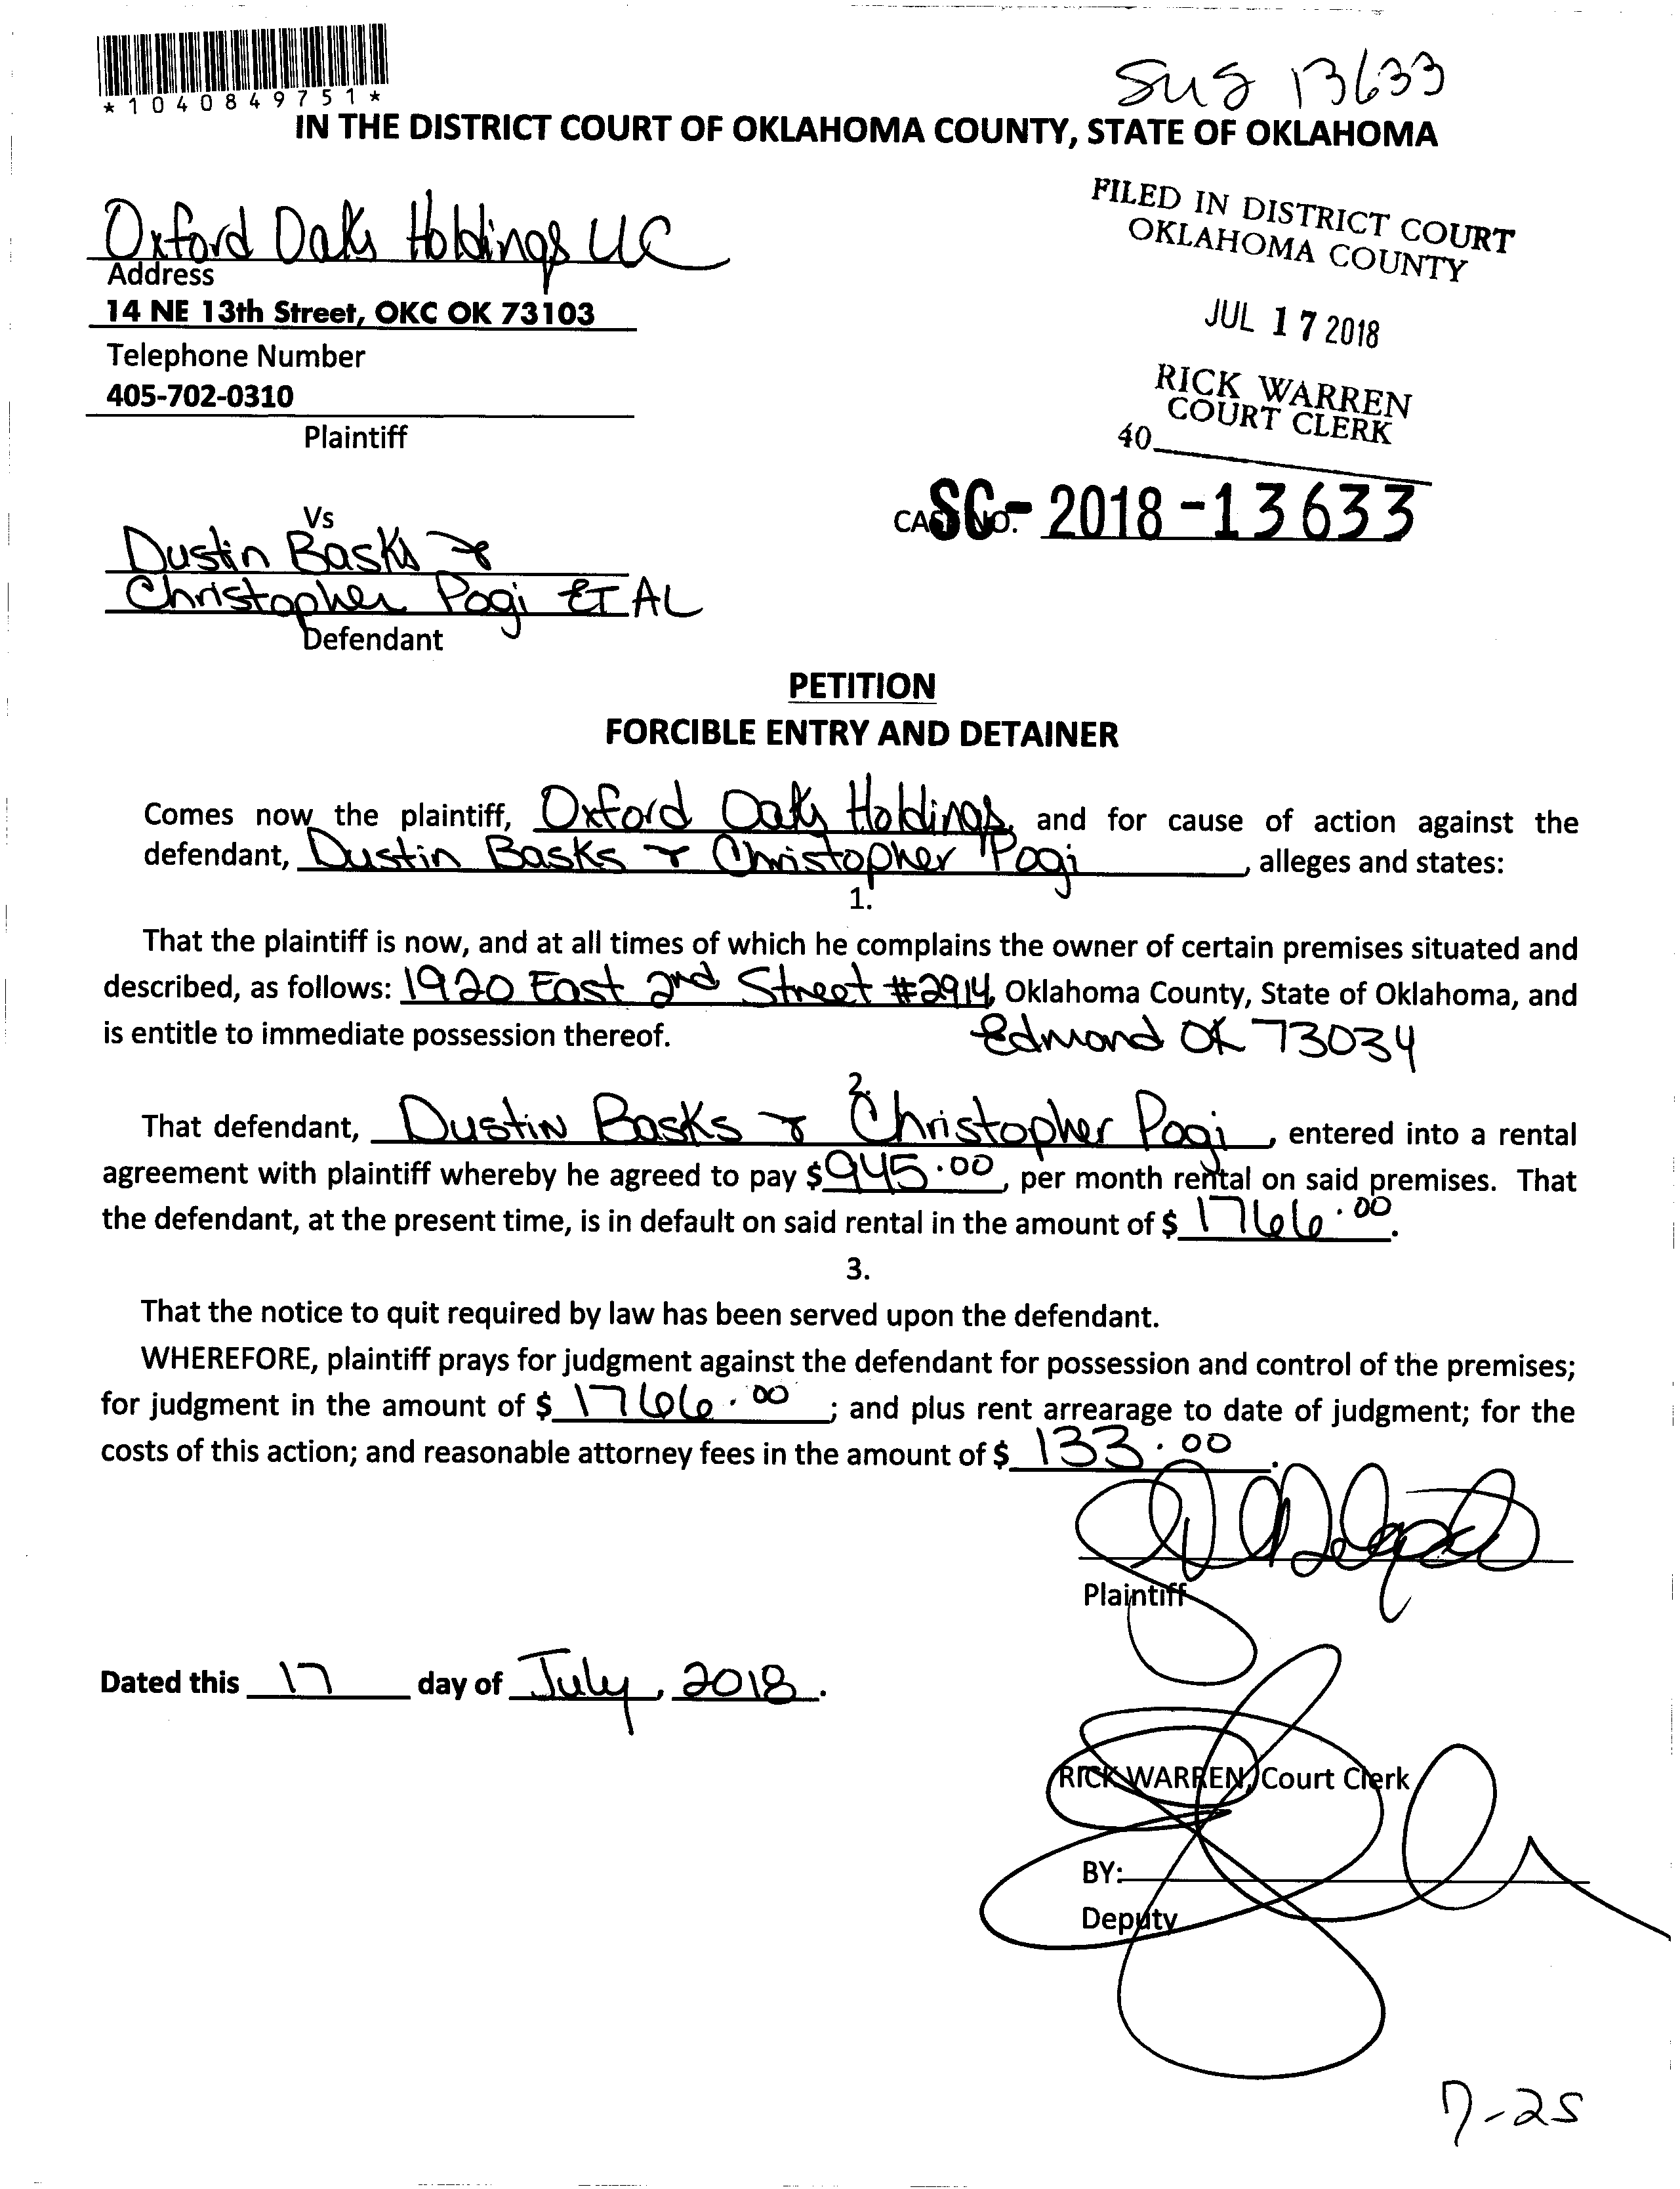 *1040849751*
13633
IN THE DISTRICT COURT OF OKLAHOMA COUNTY, STATE OF OKLAHOMA
Oxford Oaks Holdings LLC
Address
14 NE 13th Street, OKC OK 73103
Telephone Number
405-702-0310
Plaintiff
FILED IN DISTRICT COURT
OKLAHOMA COUNTY
JUL 17 2018
RICK WARREN
COURT CLERK
40
CASE NO. SC-2018-13633
Vs
Dustin Basks &
Christopher Pogi ET AL
Defendant
PETITION
FORCIBLE ENTRY AND DETAINER
Comes now the plaintiff, Oxford Oaks Holdings, and for cause of action against the
defendant, Dustin Basks & Christopher Pogi, alleges and states:
1.
That the plaintiff is now, and at all times of which he complains the owner of certain premises situated and
described, as follows: 1920 East 2nd Street #2914, Oklahoma County, State of Oklahoma, and
is entitle to immediate possession thereof. Edmond OK 73034
2.
That defendant, Dustin Basks & Christopher Pogi, entered into a rental
agreement with plaintiff whereby he agreed to pay $945.00, per month rental on said premises. That
the defendant, at the present time, is in default on said rental in the amount of $1766.00.
3.
That the notice to quit required by law has been served upon the defendant.
WHEREFORE, plaintiff prays for judgment against the defendant for possession and control of the premises;
for judgment in the amount of $1766.00; and plus rent arrearage to date of judgment; for the
costs of this action; and reasonable attorney fees in the amount of $133.00.
Plaintiff
Dated this 17 day of July, 2018.
RICK WARREN, Court Clerk
BY:
Deputy
7-25